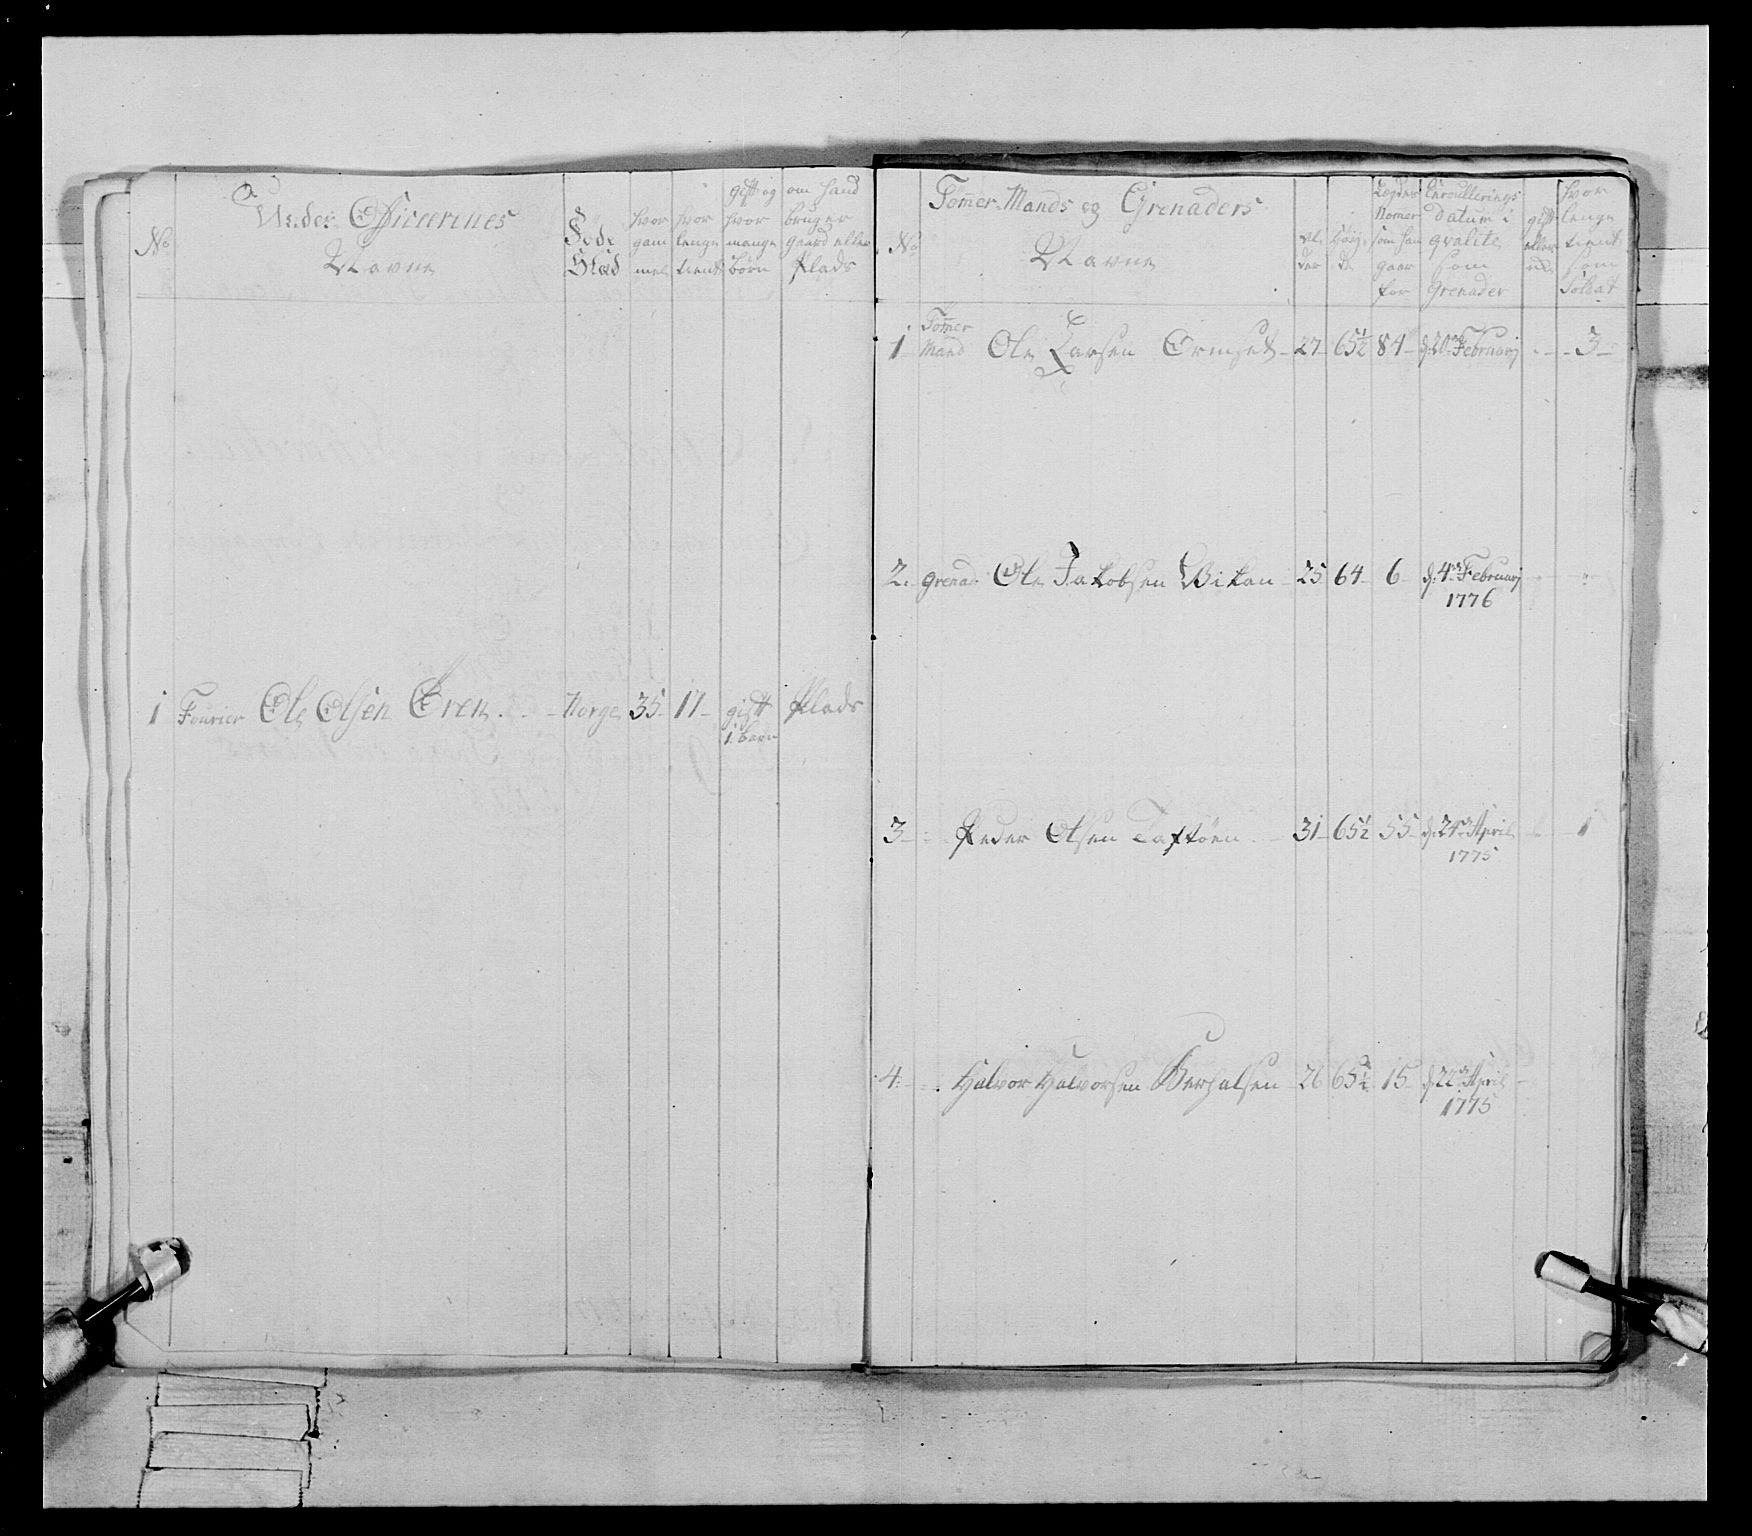 Under Officerernes
No
Navne
Føde
Stæd
hvor
gam
mel
hvor
lenge
tient
gift og
hvor
mange
børn
om hand
bruger
gaard eller
Plads
1 Fourier Ole Olsen Øren Norge 35 17 gift Plads
1 barn
Tømer Mands og Grenaders
No
Navne
Al
der
Høy
de
Lægdets
Nomer
som han
gaar
for
Enroullerings
datum i
qvalite
som
Grenader
gift
eller
ei
hvor
lenge
tient
som
Soldat
1 Tømer
Mand Ole Larsen Ormset 27 65½ 84 d: 20 Februarj 3
2. Grenad Ole Jakobsen Vikan 25 64 6 d: 4 Februarj
1776
3 Peder Olsen Taftøen 31 65½ 55 d: 24 April 1
1775
4 Halvor Halvorsen 26 65½ 15 d: 22 April
1775